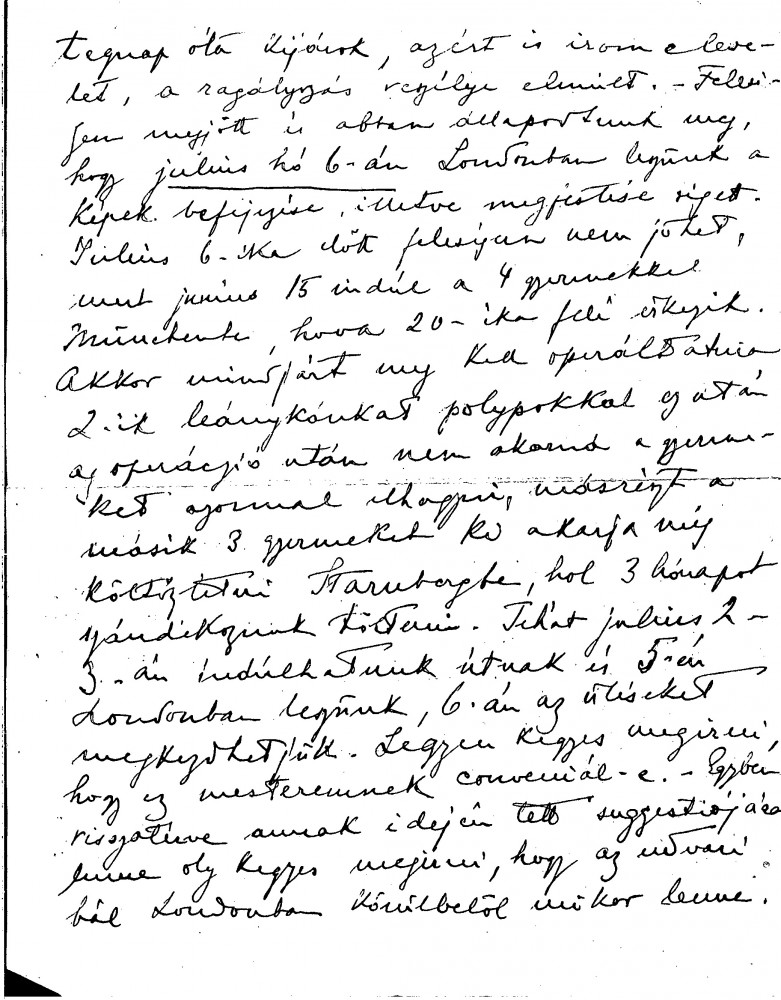 tegnap óta kijárok, azért is irom e leve-
let, a ragályzás veszélye elmúlt. - Felesé-
gem megjött és abban állapodtunk meg,
hogy július hó 6-án Londonban leszünk a
képek befejezése, illetve megfestése végett.
Július 6-ika előtt feleségem nem jöhet,
mert junius 15 indúl a 4 gyermekkel
Münchenbe, hova 20-ika felé érkezik.
Akkor mindjárt meg kell operáltatnia
2-ik leánykánkat polypokkal s ez után
az operáczió után nem akarná a gyerme-
ket azonnal elhagyni, másrészt a
másik 3 gyermeket ki akarja még
költöztetni Starnbergbe, hol 3 hónapot
szándékozunk tölteni. Tehát julius 2-
3-án indúlhatunk útnak és 5-én
Londonban leszünk, 6-án az üléseket
megkezdhetjük. Legyen kegyes megirni,
hogy ez mesteremnek conveniál-e. - Egyben
visszatérve annak idején tett suggestiójára
lenne oly kegyes megirni, hogy az udvari
bál Londonban körülbelöl mikor lenne.